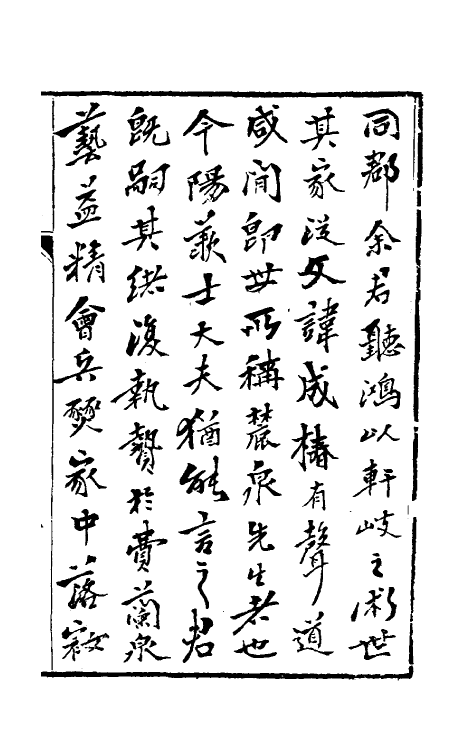 同郡余君聽鴻以軒岐之術世
其家從父諱成椿有聲道
咸間卽世所稱麓泉先生者也
今陽羨士大夫猶能言之君
旣嗣其緒復執贄於費蘭泉
藝益精會兵燹家中落寂